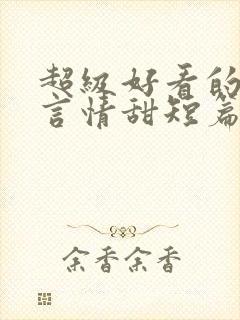 超级好看的
言情甜短篇
余香余香